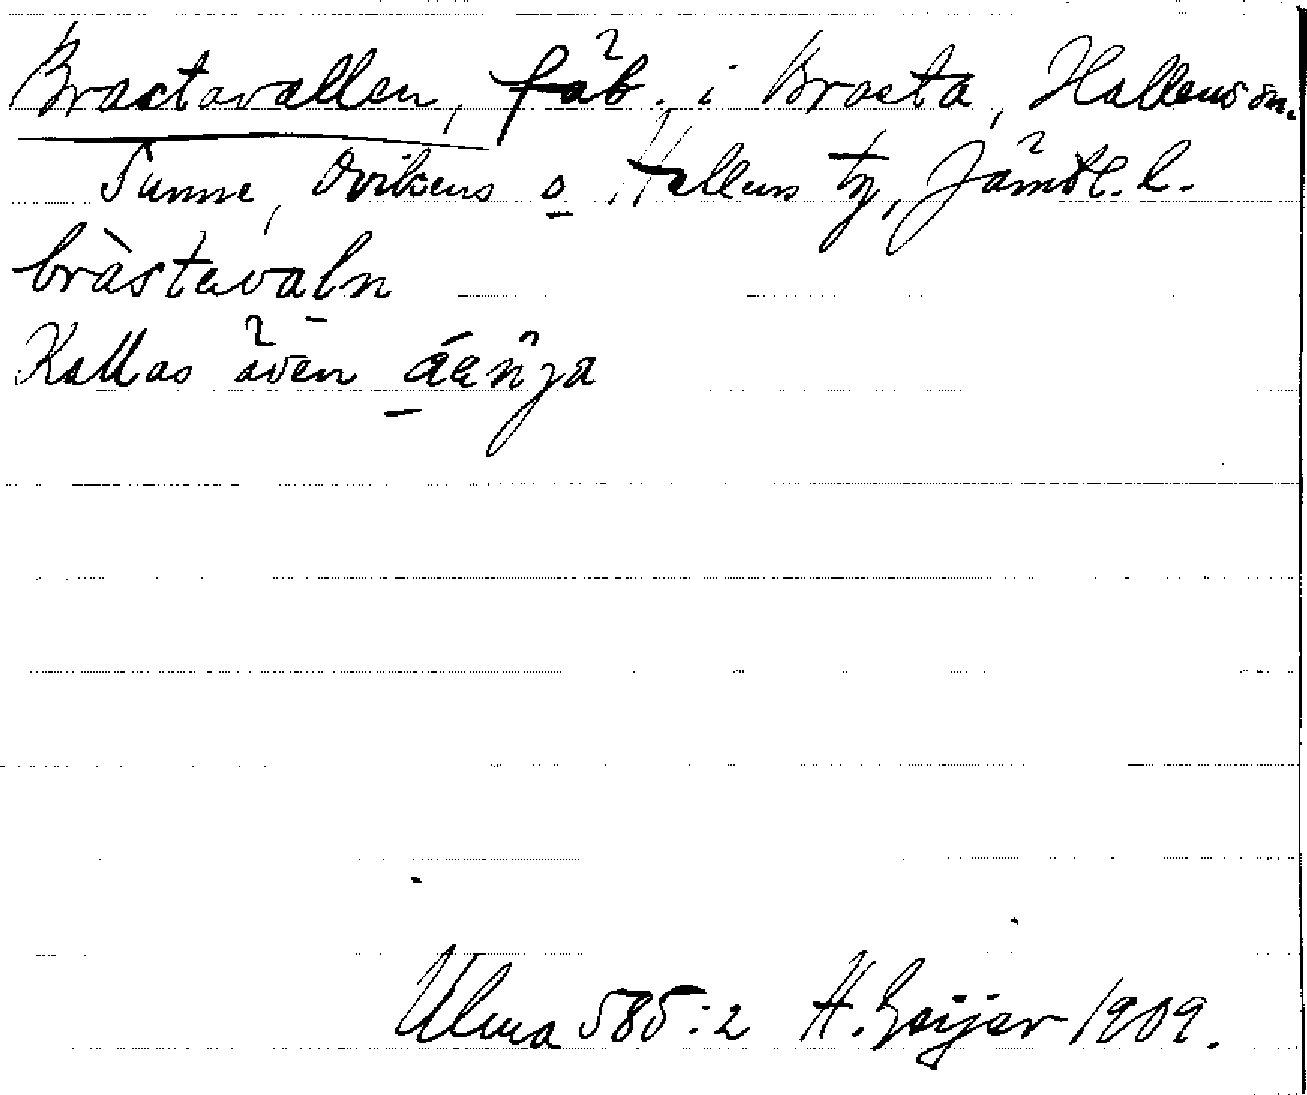 Brastavallen, fäb. i Brasta, Hallens sn.
Sunne, Ovikens o Hallens tg, Jämtl. l.
bràstavaln
Kallas även áanja
Ulma 585:2 H. Geijer 1909.